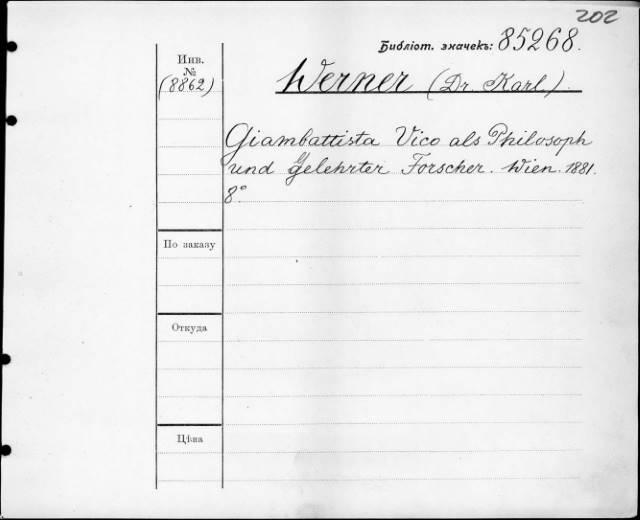 202
Библіот. значекъ: 85268.
Инв.
№
(8862)
Werner (Dr. Karl.)
Giambattista Vico als Philosoph
und Gelehrter Forscher. Wien. 1881.
8°
По заказу
Откуда
Цѣна